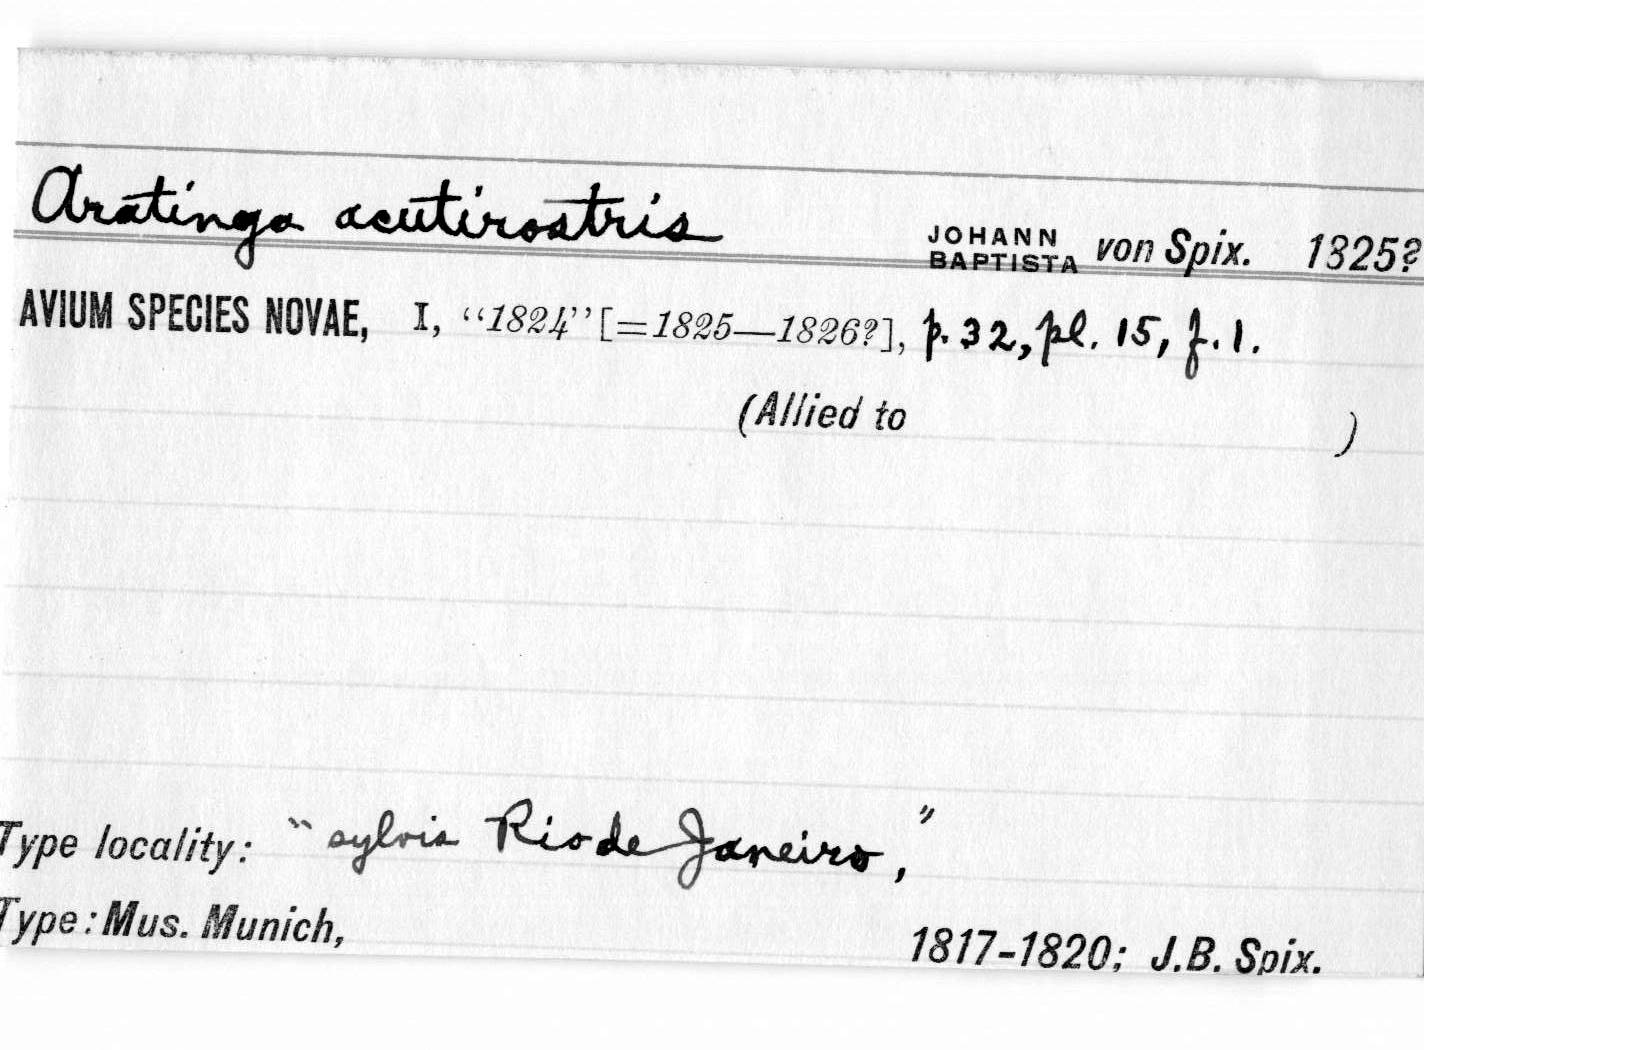 Aratinga acutirostris JOHANN BAPTISTA von Spix. 1825?
AVIUM SPECIES NOVAE, I, “1824” [=1825—1826?], p. 32, pl. 15, f. 1.
(Allied to )
Type locality: "sylvis Rio de Janeiro,"
Type: Mus. Munich, 1817-1820; J.B. Spix.